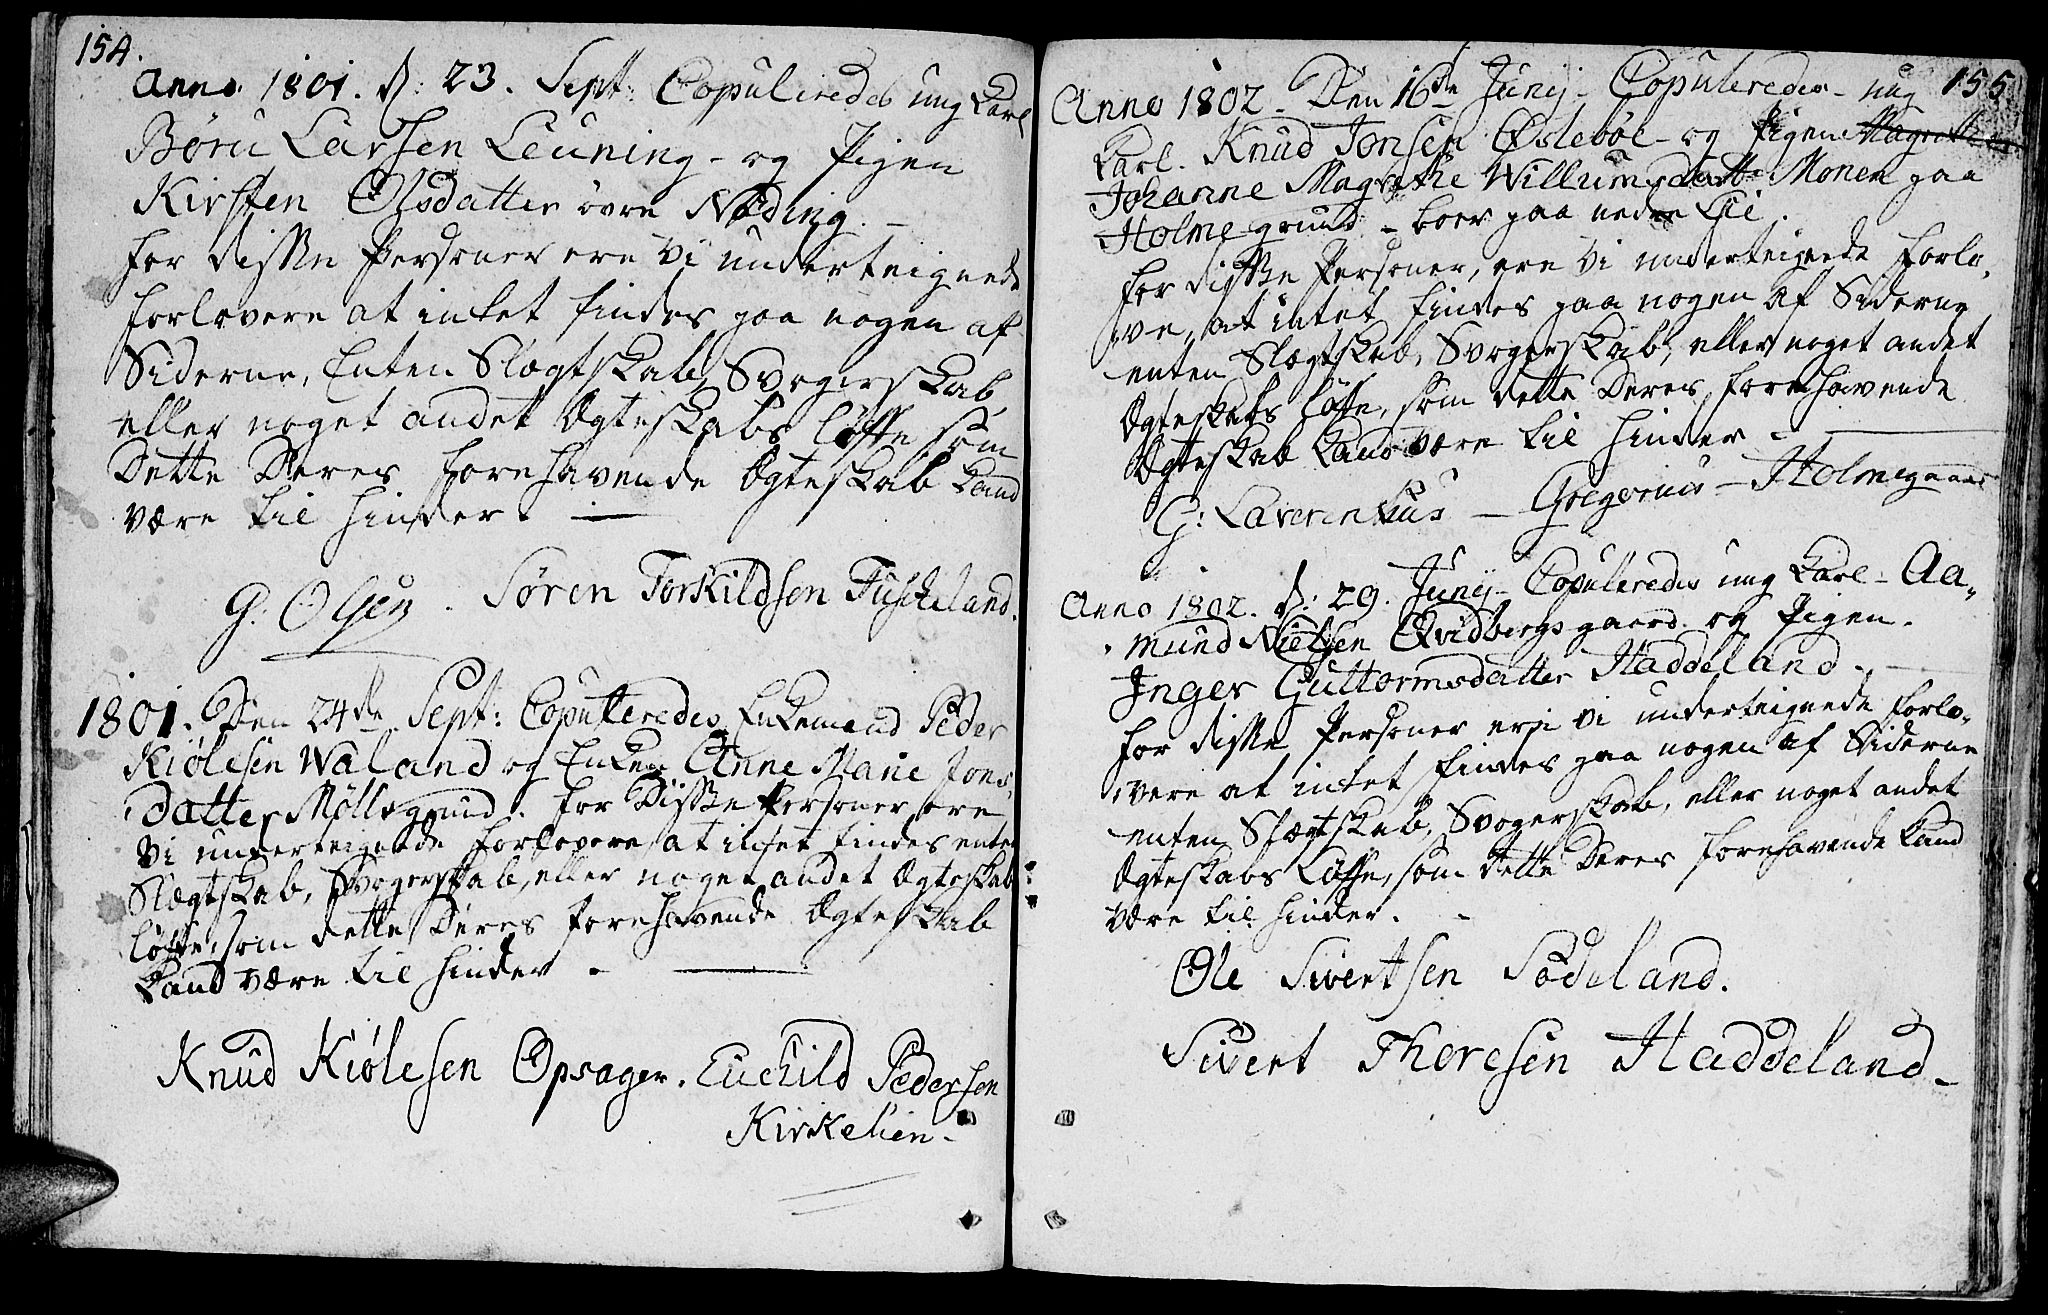 154.
Anno 1801. d: 23. Sept: Copuleredes ung Karl
Børu Larsen Leuning - og Pigen
Kirsten Olsdatter øvre Nøding. -
for disse Personer ere vi undertegnede
forlovere at intet findes paa nogen af
Siderne, Enten Slægtskab, Svogerskab
eller noget andet Ægteskabs løfte som
Dette Deres forehavende Ægteskab kand
være til hinder. -
G: Olsen. Søren Torkildsen Fuskeland.
1801. Den 24de Sept: Copuleredes Enkemand Peder
Kiølesen Waland og Enken Anne Marie Jons,
datter Møllegrund. for Disse Personer ere
vi undertegnede forlovere, at intet findes enten
Slægtskab, Svogerskab, eller noget andet Ægteskab
løfte, som dette Deres forehavende Ægteskab
kand være til hinder. -
Knud Kiølesen Opsager. Euchild Pedersen
Kirkelien. -
155
Anno 1802 - Den 16de Junij - Copuleredes - ung
Karl. Knud Jonsen Øslebøe - og Pigen
Johanne Magrethe Willumsdatter Monen paa
Holmegrund - boer paa nedre Lie.
for disse Personer, ere vi undertegnede forlo,
,vere, at intet findes paa nogen af Siderne
enten Slægtskab, Svogerskab, eller noget andet
Ægteskabs løfte, som dette Deres forehavende
Ægteskab kand være til hinder -
G: Laverentius - Gregorius - Holmegaard
Anno 1802. d: 29. Junij - Copuleredes ung Karl - Aa,
,mund Nielsen Qvidbergsgaard og Pigen.
Inger Guttormsdatter Haddeland. -
for disse Personer ere vi undertegnede forlo,
,vere at intet findes paa nogen af Siderne
enten Slægtskab, Svogerskab, eller noget andet
Ægteskabs Løfte, som dette Deres forehavende kand
være til hinder. -
Ole Sivertsen Sødeland.
Sivert Thoresen Haddeland -